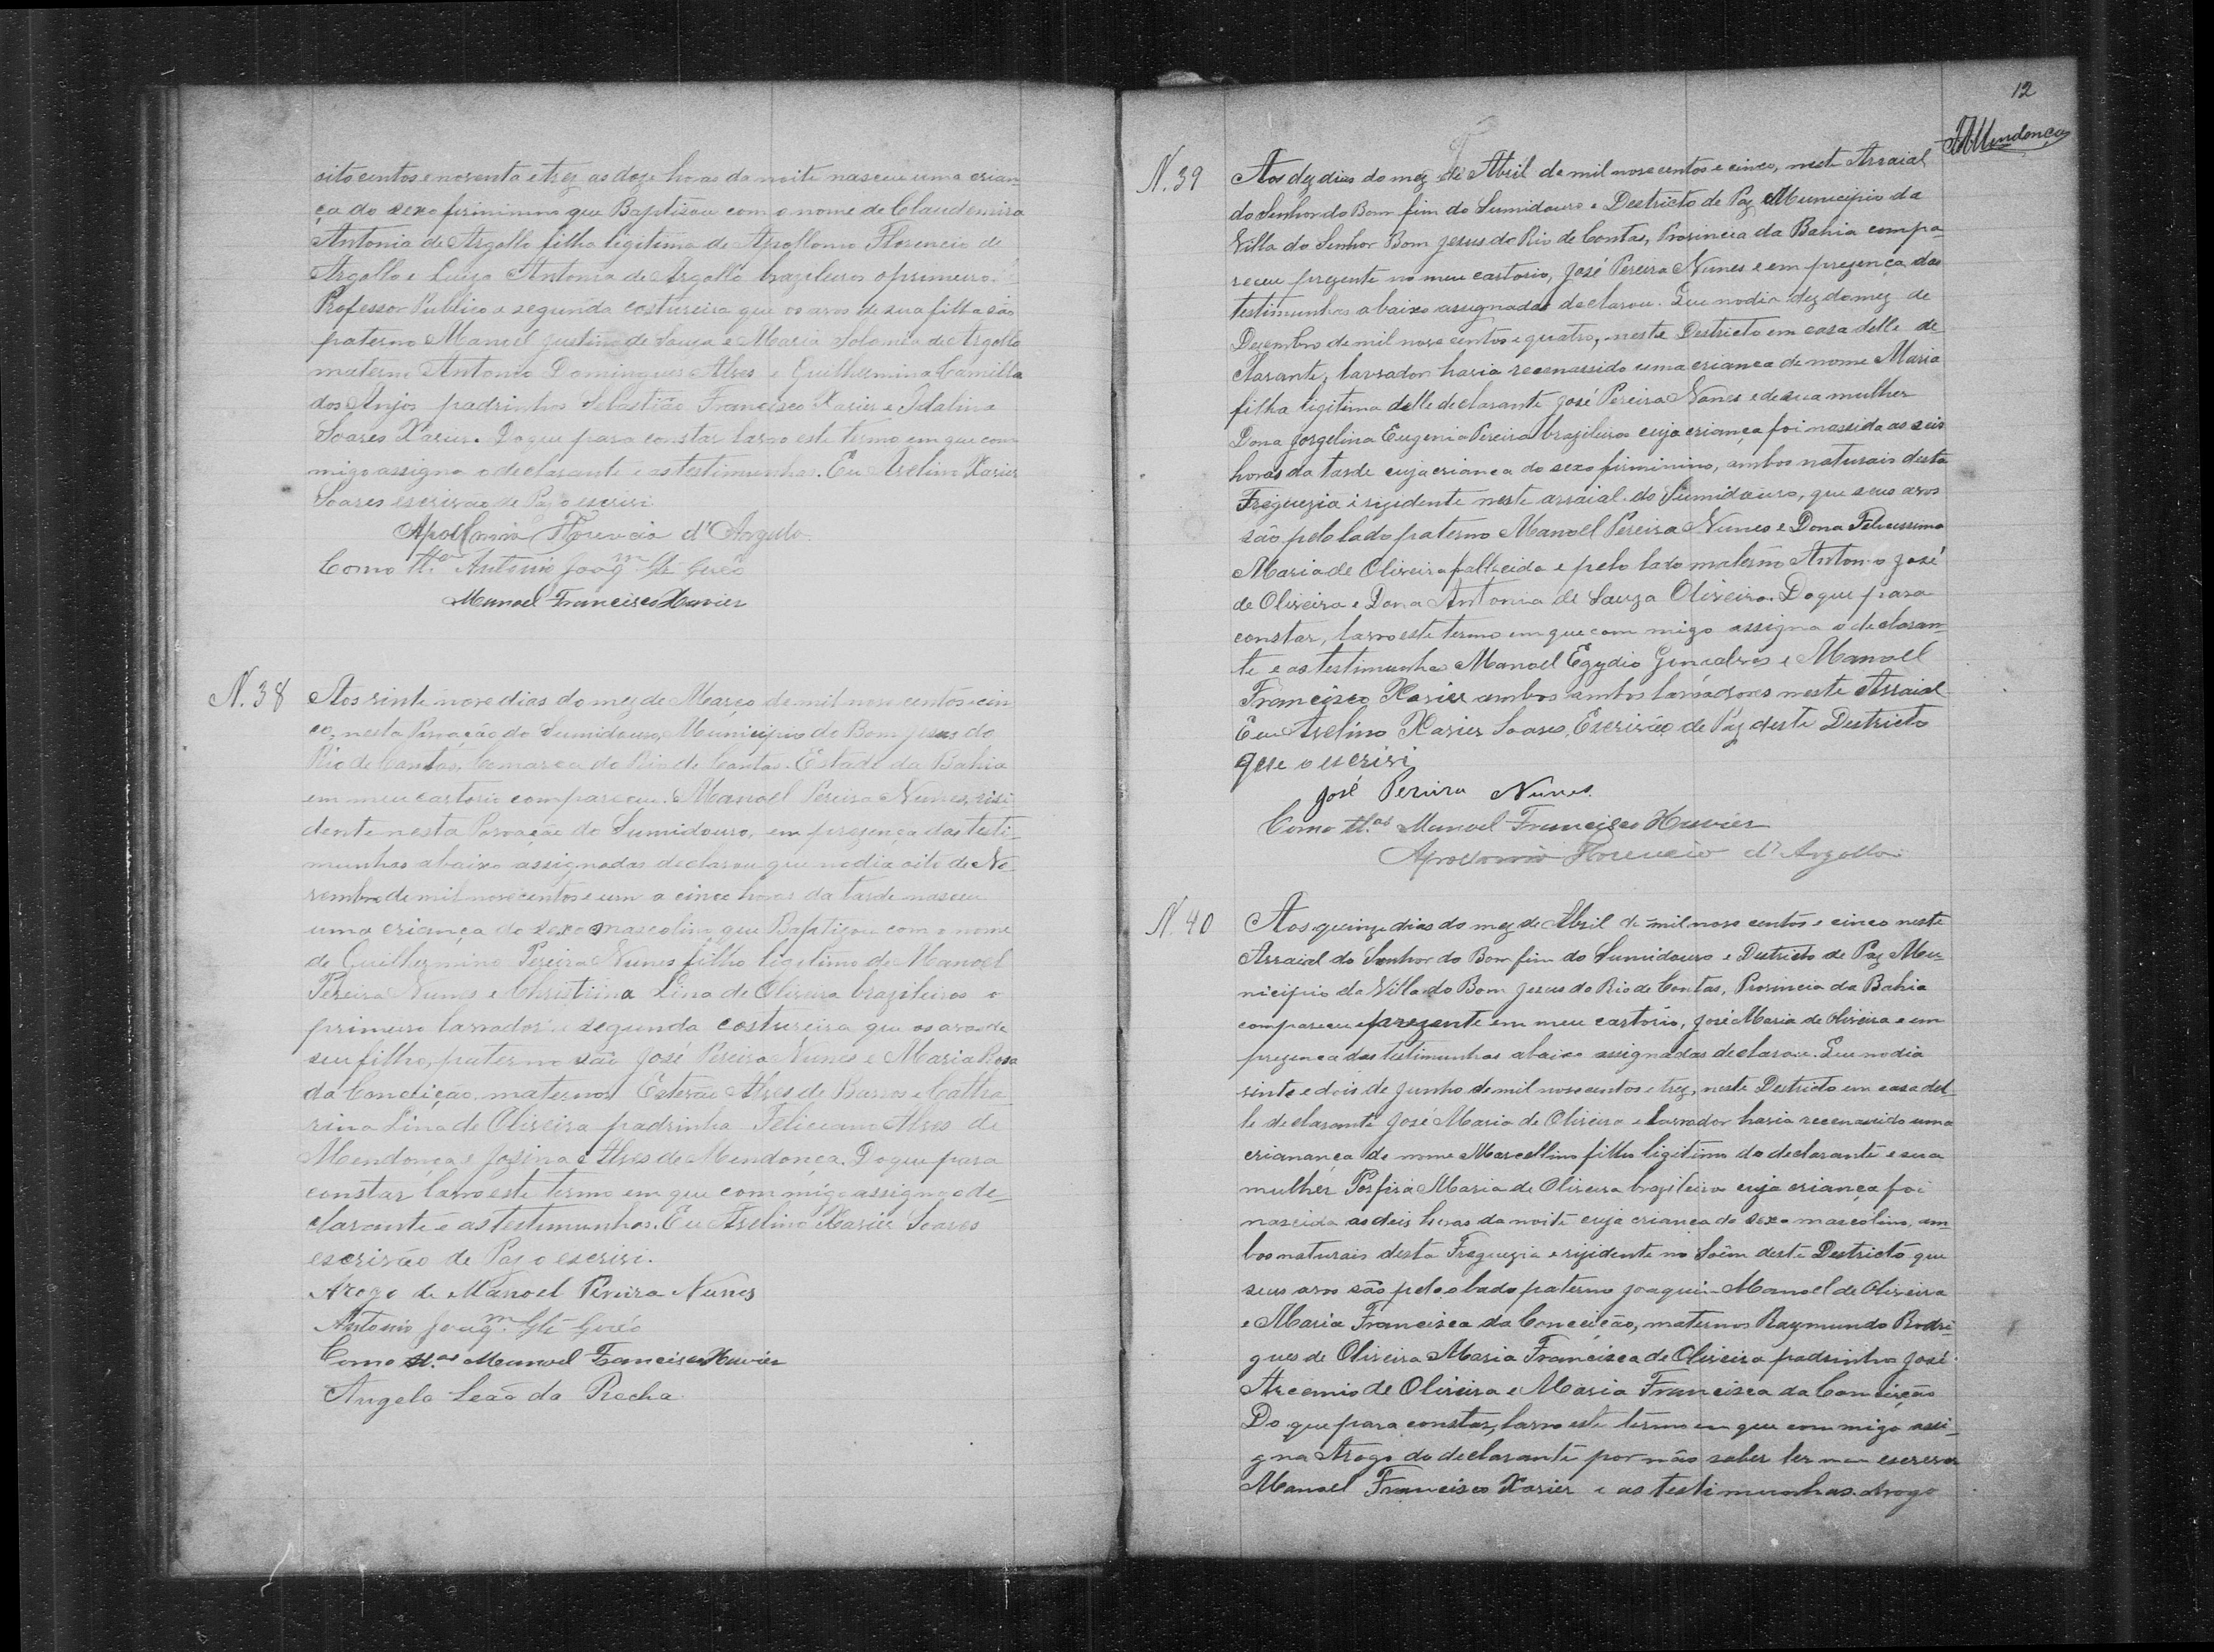 oito centos e noventa e trez, as doze horas da noite nasceu uma crian-
ça do sexo firminino que Baptisou com o nome de Claudemira
Antonia de Argollo filha legitima de Apollonio Florencio de
Argollo e Luiza Antonia de Argollo brazileiros o primeiro
Professor Publico a segunda costureira que os avos de sua filha são
paterno Manoel Justino de Souza e Maria Solomia de Argollo
materno Antonio Domingues Alves e Guilhermina Camilla
dos Anjos padrinhos Sebastião Francisco Xavier e Idalina
Soares Xavier. Do que para constar lavro este termo em que com
migo assigna o declarante e as testimunhas. Eu Avelino Xavier
Soares escrivão de Paz o escrivi
Apollonio Florencio d'Argollo
Como tt.as Antonio Joaq.m
Manoel Francisco Xavier
N. 38 Aos vinte nove dias do mez de Março de mil nove centos e cin
co, nesta Povoação do Sumidouro, Municipio do Bom Jesus do
Rio de Contas, Comarca do Rio de Contas. Estado da Bahia
em meu cartorio compareceu. Manoel Pereira Nunes, risi
dente nesta Povoação do Sumidouro, em prezença das testi-
munhas abaixo assignadas declarou que no dia oito de No-
vembro de mil nove centos e um a cinco horas da tarde nasceu
uma criança do sexo mascolino que Baptizou com o nome
de Guilhermino Pereira Nunes filho ligitimo de Manoel
Pereira Nunes e Christina Lina de Oliveira brazileiros o
primeiro lavrador a segunda costureira que os avos de
seu filho, paterno são José Pereira Nunes e Maria Rosa
da Conceição, maternos Estevão Alves de Barros e Catha
rina Lina de Oliveira padrinho Feliciano Alves de
Mendonça e Jozina Alves de Mendonça. Do que para
constar lavro este termo em que com migo assigna o de-
clarante e as testimunhas. Eu Avelino Xavier Soares
escrivão de Paz o escrivi.
Arogo de Manoel Pereira Nunes
Antonio Joaq.m
Como tt.as Manoel Francisco Xavier
Angelo Leão da Rocha
12
Mendonça
N. 39 Aos dez dias do mez de Abril de mil nove centos e cinco, neste Arraial
do Senhor do Bom fim do Sumidouro e Destricto de Paz Municipio da
Villa do Senhor Bom Jesus do Rio de Contas, Provincia da Bahia compa-
receu prezente no meu cartorio, José Pereira Nunes e em prezença das
testimunhas abaixo assignadas declarou. Que no dia dez do mez de
Dezembro de mil nove centos e quatro, neste Destricto em casa delle de-
clarante, lavrador havia recenassido uma criança de nome Maria
filha ligitima delle declarante José Pereira Nunes e de sua mulher
Dona Jorgelina Eugenia Pereira brazileiros cuja criança foi nassida as seis
horas da tarde cuja criança do sexo firminino, ambos naturais desta
Freguezia e rizidente neste arraial do Sumidouro, que seus avos
são pelo lado paterno Manoel Pereira Nunes e Dona Felicissima
Maria de Oliveira fallecida e pelo lado materno Antonio José
de Oliveira e Dona Antonia de Souza Oliveira. Do que para
constar, lavro este termo em que com migo assigna o declaran-
te e as testimunhas Manoel Egydio Gonçalves e Manoel
Francisco Xavier ambos ambos lavradores neste Arraial
Eu Avelino Xavier Soares, Escrivão de Paz deste Destricto
que o escrivi
José Pereira Nunes.
Como tt.as Manoel Francisco Xavier
Apollonio Florencio d'Argollo
N. 40 Aos quinze dias do mez de Abril de mil nove centos e cinco neste
Arraial do Senhor do Bom fim do Sumidouro e Districto de Paz Mu-
nicipio da Villa do Bom Jesus do Rio de Contas, Provincia da Bahia
compareceu prezente em meu cartorio, José Maria de Oliveira e em
prezença das testimunhas abaixo assignadas declarou. Que no dia
vinte e dois de Junho de mil nove centos e trez, neste Destricto em casa del-
le declarante José Maria de Oliveira e lavrador havia recenassido uma
criança de nome Marcellino filho ligitimo do declarante e sua
mulher Porfira Maria de Oliveira brazileira cuja criança foi
nascida as deis horas da noite cuja criança do sexo mascolino, am
bos naturais desta Freguezia e rizidente no deste Destricto que
seus avos são pelo lado paterno Joaquim Manoel de Oliveira
e Maria Francisca da Conceição, maternos Raymundo Rodri-
gues de Oliveira Maria Francisca de Oliveira padrinhos José
Arcenio de Oliveira e Maria Francisca da Conceição
Do que para constar, lavro este termo em que com migo assi-
gna Arogo do declarante por não saber ler nem escrever
Manoel Francisco Xavier e as testimunhas. Arogo